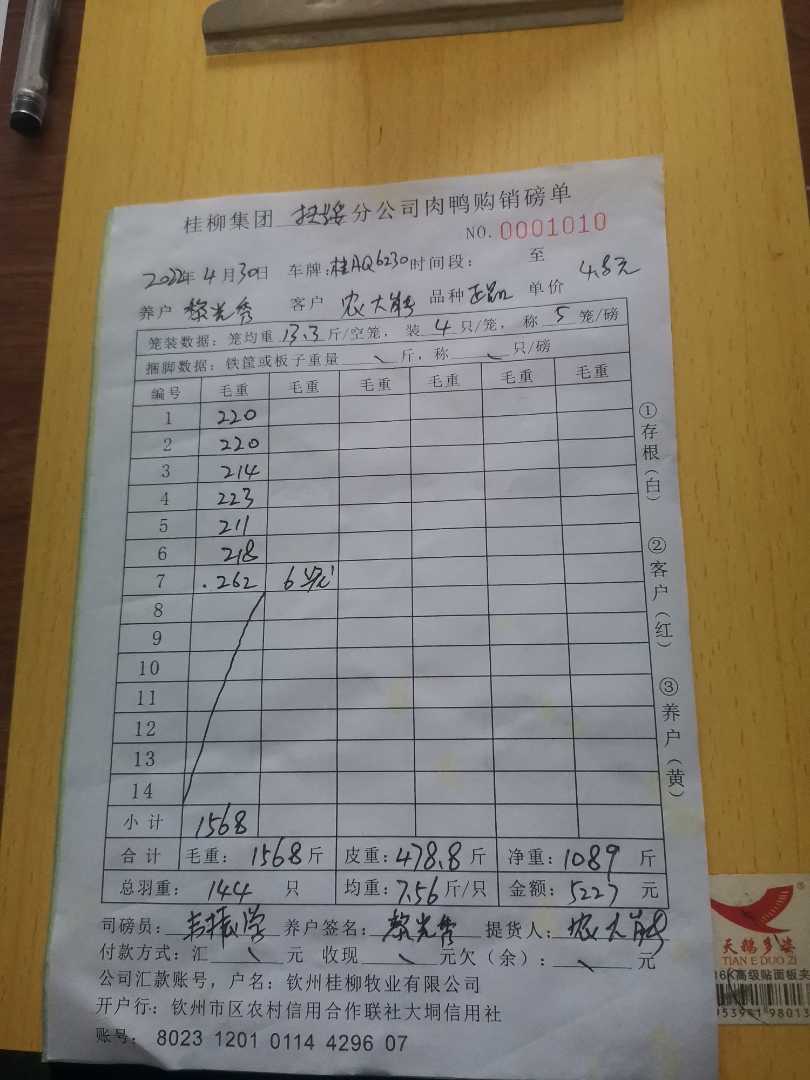 桂柳集团 扶绥 分公司肉鸭购销磅单
NO. 0001010
2022年4月30日 车牌:桂AQ6230时间段: 至
养户 黎光秀 客户 农大 品种 正品 单价 4.8元
笼装数据:笼均重 13.3 斤/空笼, 装 4 只/笼, 称 5 笼/磅
捆脚数据:铁筐或板子重量 斤,称 只/磅
编号 毛重 毛重 毛重 毛重 毛重 毛重
1 220
2 220
3 214
4 223
5 211
6 218
7 .262 6
8
9
10
11
12
13
14
小计 1568
合计 毛重: 1568斤 皮重: 478.8斤 净重: 1089 斤
总羽重: 144 只 均重: 7.56斤/只 金额: 5227 元
司磅员: 韦振学 养户签名: 黎光秀 提货人: 农大
付款方式:汇 元 收现 元欠(余): 元
公司汇款账号,户名:钦州桂柳牧业有限公司
开户行:钦州市区农村信用合作联社大垌信用社
账号: 8023 1201 0114 4296 07
①存根(白) ②客户(红) ③养户(黄)
天鹅多姿
TIAN E DUO ZI
16K高级贴面板夹